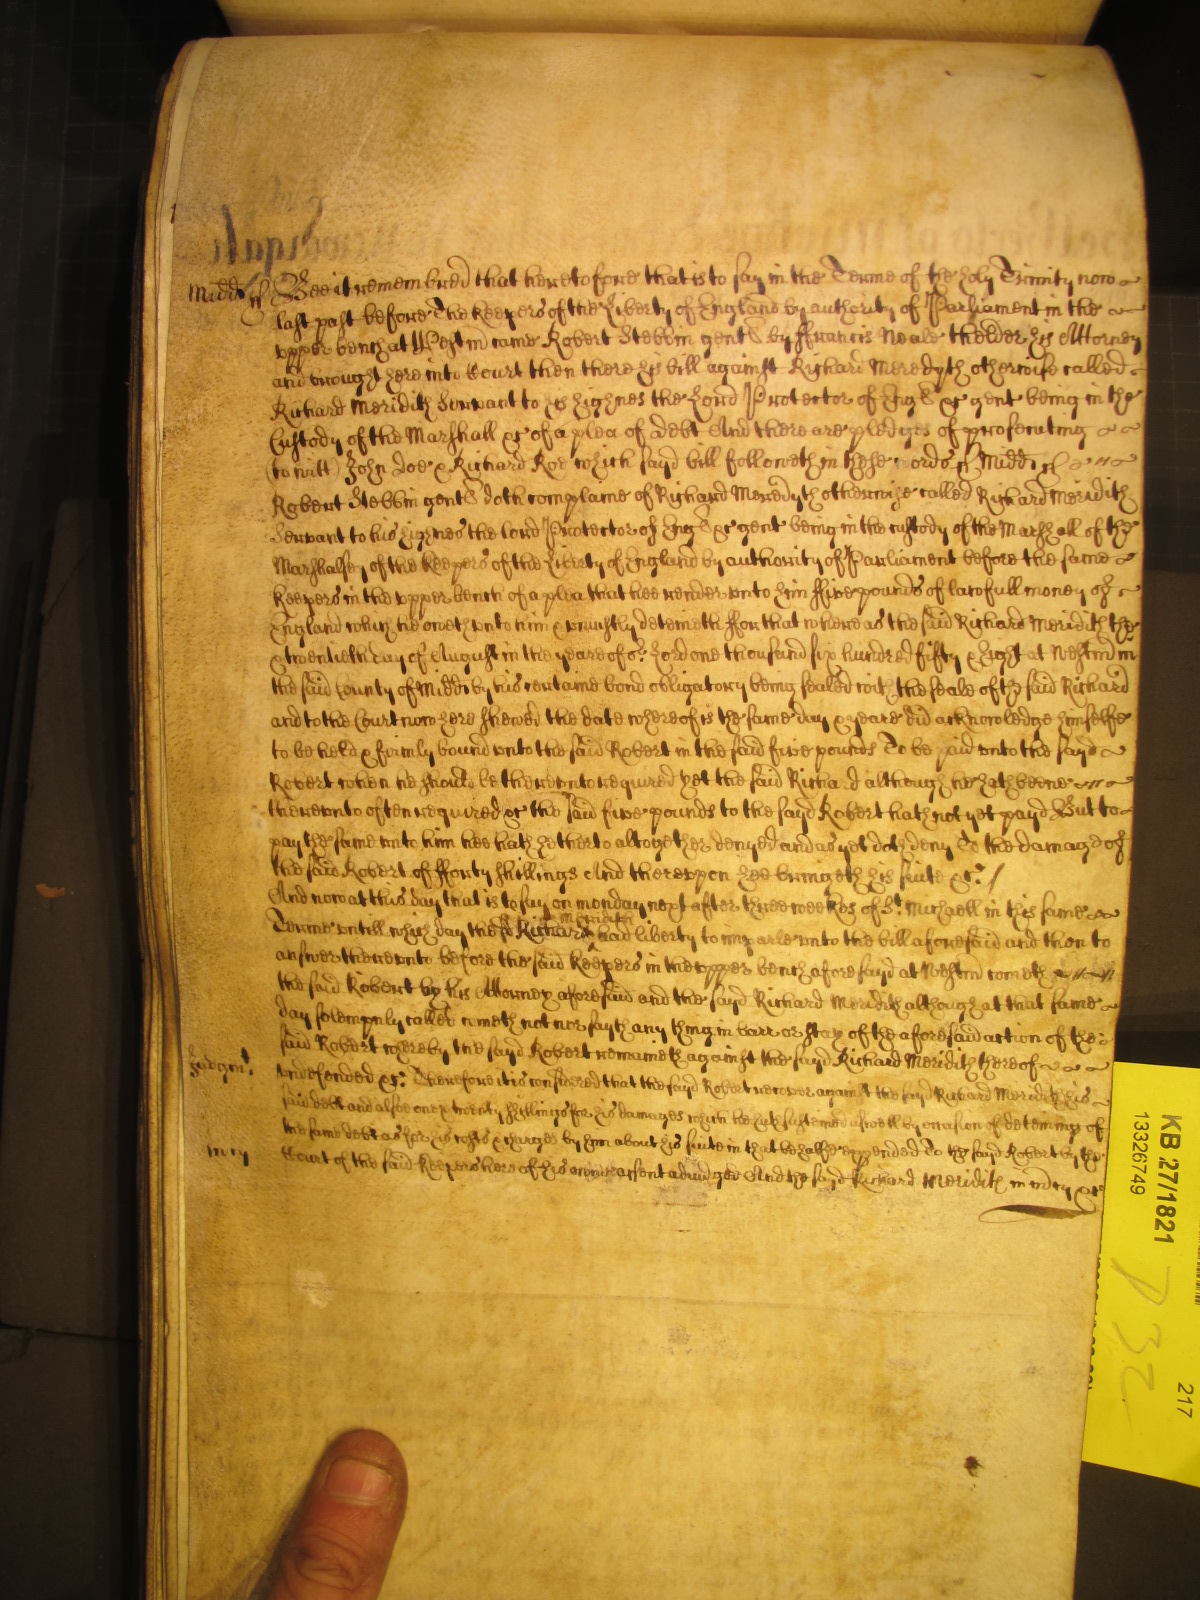 Midd ss Bee it remembred that heretofore that is to say in the Terme of the holy Trinity now
last past before The Keepers of the Liberty of England by authority of Parliament in the
upper bench at Westm came Robert Stebbin gent by ffrancis Neale thelder his Attorney
and brought here into Court then there his bill against Richard Meredyth otherwise called
Richard Meridith Servant to his highnes the Lord Protector of Engl &c gent being in the
Custody of the Marshall &c of a plea of debt And there are pledges of prosecuting
(to witt) John Doe & Richard Roe which sayd bill followeth in these words ss Midd ss
Robert Stebbin gent doth complaine of Richard Meredyth otherwise called Richard Meridith
Servant to his highnes the Lord Protector of Engl &c gent being in the custody of the Marshall of the
Marshalsey of the Keepers of the Liberty of England by authority of Parliament before the same
Keepers in the upper bench of a plea that hee render unto him ffive pounds of lawfull money of
England which he oweth unto him & uniustly deteineth ffor that whereas the said Richard Meridith the
twentieth day of August in the yeare of or Lord one thousand six hundred fifty & Eight at Westm in
the said County of Midd by his certaine bond obligatory being sealed with the seale of the said Richard
and to the Court now here shewed the date whereof is the same day & yeare did acknowledge himselfe
to be held & firmly bound unto the said Robert in the said five pounds To be paid unto the sayd
Robert when he should be thereunto required Yet the said Richard although he hath beene
thereunto often required &c the said five pounds to the sayd Robert hath not yet payd But to
pay the same unto him hee hath hetherto altogether denyed and as yet doth deny To the damage of
the said Robert of fforty shillings And thereupon hee bringeth his suite &c
And now at this day that is to say on monday next after three weekes of St Michaell in this same
Terme untill which day the sd Richard Meridith had liberty to imparle unto the bill aforesaid and then to
answer thereunto before the said Keepers in the upper bench aforesayd at Westm cometh
the said Robert by his Attorney aforesaid and the sayd Richard Meridith although at that same
day solempnly called cometh not nor sayth any thing in barr or stay of the aforesaid action of the
said Robert whereby the sayd Robert remaineth against the sayd Richard Meridith thereof
Judgmt undefended &c Therefore it is considered that the sayd Robert recover against the sayd Richard Meridith his
said debt and alsoe one & twenty shillings for his damages which he hath susteined aswell by occasion of deteining of
the same debt as for his costs & charges by him about his suite in that behalfe expended To the sayd Robert by the
mcy Court of the said Keepers here of his owne assent adiudged And the sayd Richard Meridith in mcy &c
KB 27/1821
13326749
217
P32